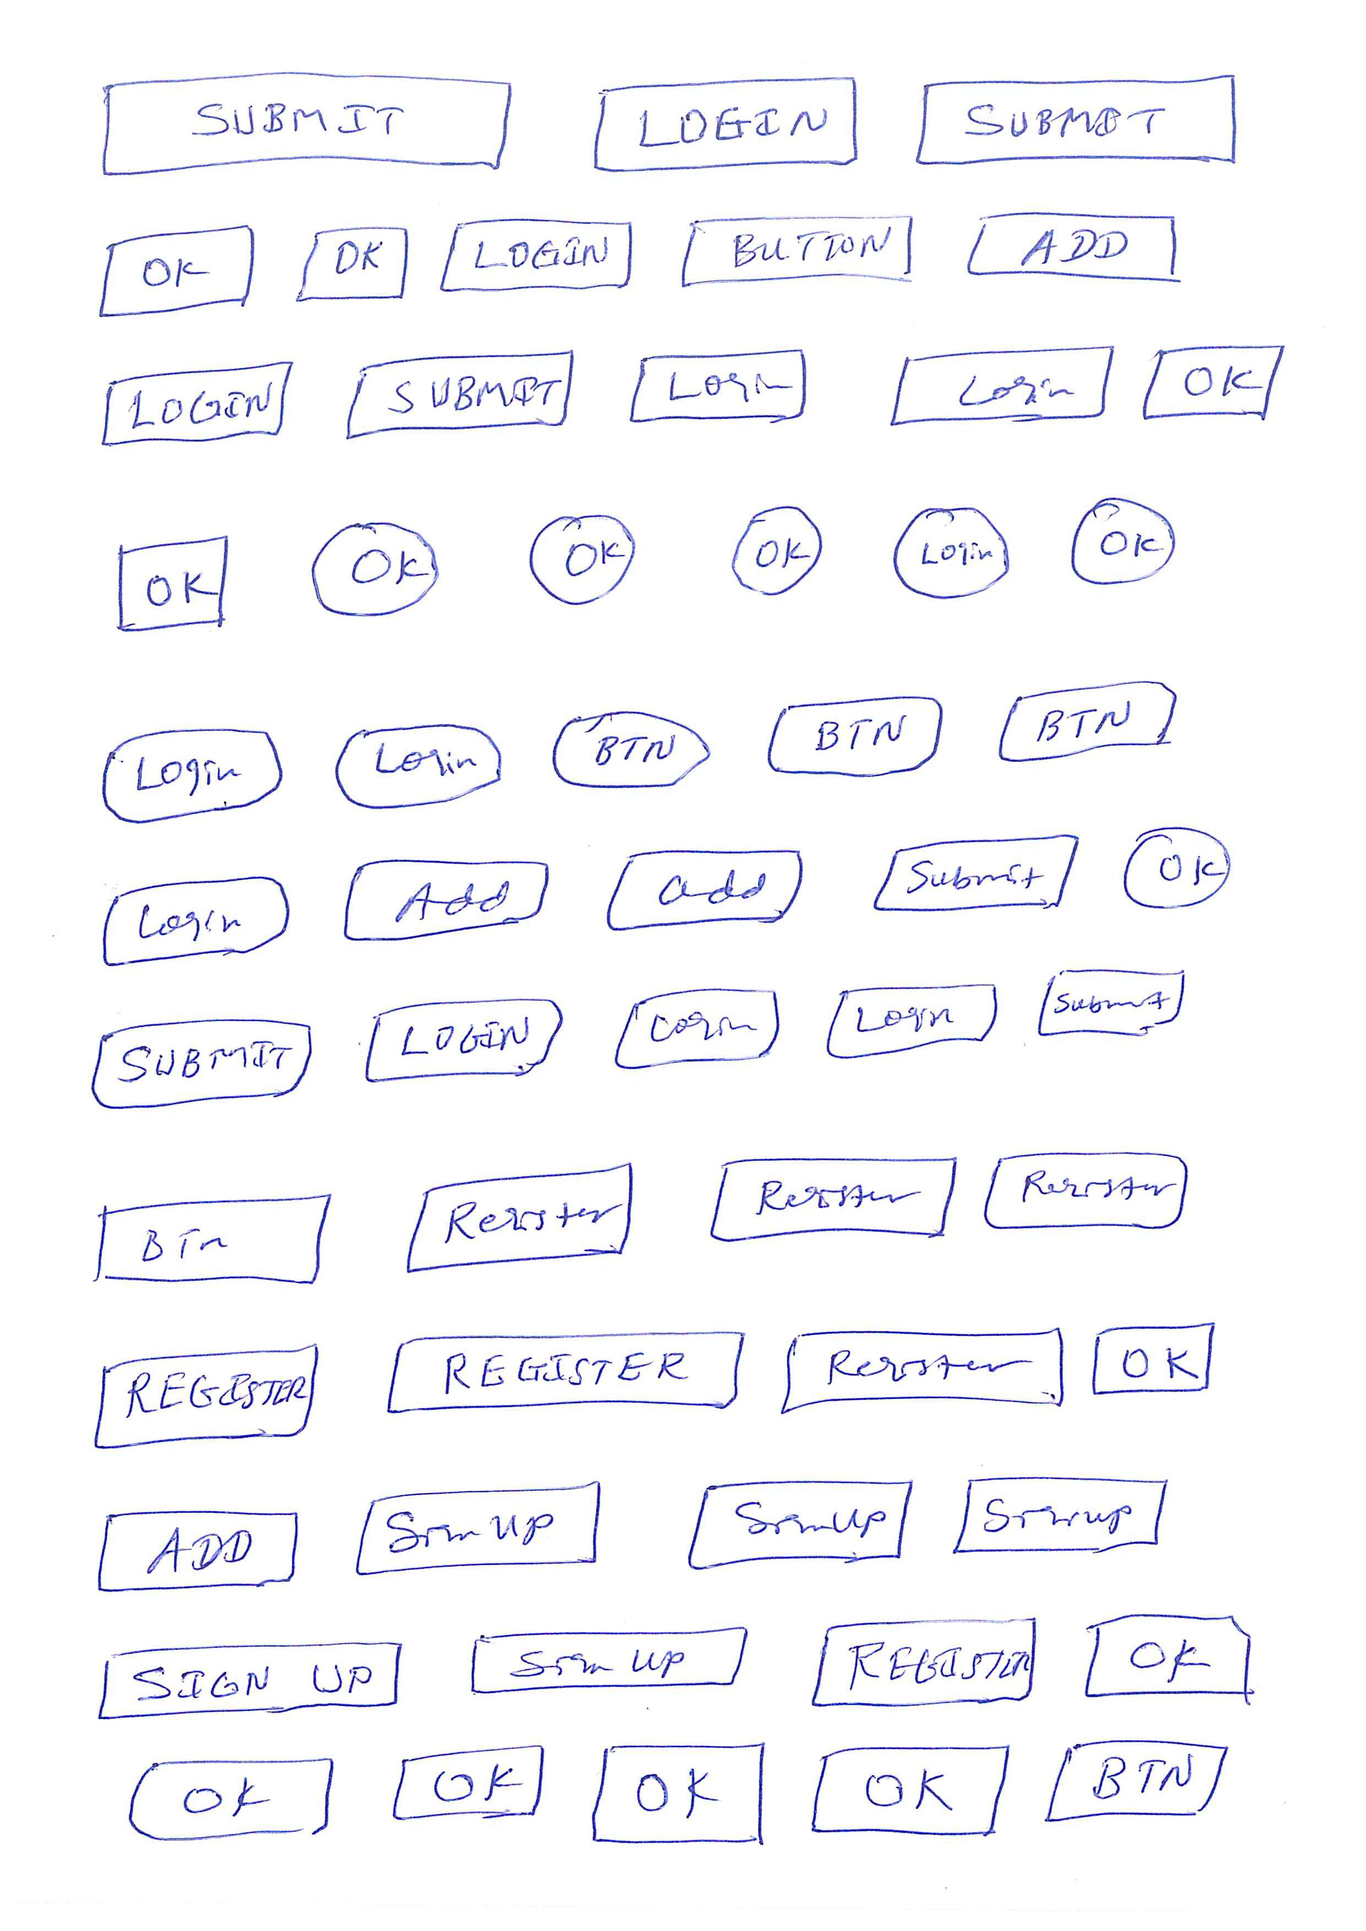 SUBMIT LOGIN SUBMIT
OK OK LOGIN BUTTON ADD
LOGIN SUBMIT Login Login OK
OK OK OK OK Login OK
Login Login BTN BTN BTN
Login Add add Submit OK
SUBMIT LOGIN Login Login Submit
BTn Register Register Register
REGISTER REGISTER Register OK
ADD Sign UP Sign Up Sign up
SIGN UP Sign up REGISTER OK
OK OK OK OK BTN